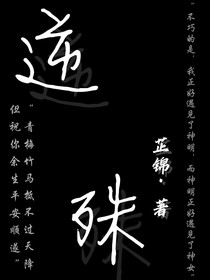 “不巧的是，我正好遇见了神明，而神明正好遇见了神女。”
殊
芷锦·著
“青梅竹马抵不过天降
但祝你余生平安顺遂”